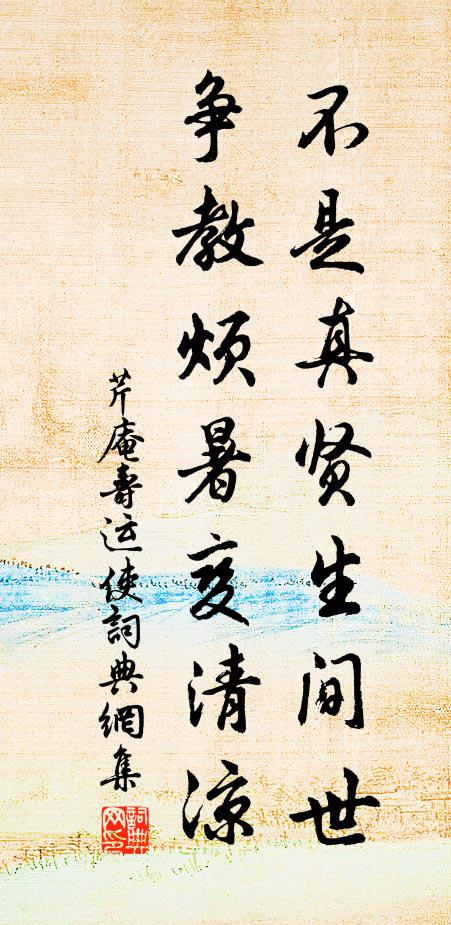 不是真贤生间世
争教烦暑变清凉
芹庵寿运使詞典網集
詞典网印